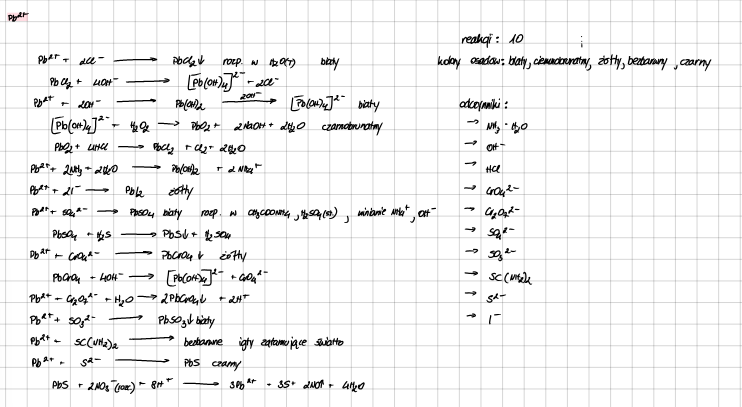 Pb²⁺
Pb²⁺ + 2Cl⁻ → PbCl₂↓ rozp. w H₂O(T) biały
PbCl₂ + 4OH⁻ → [Pb(OH)₄]²⁻ + 2Cl⁻
Pb²⁺ + 2OH⁻ → Pb(OH)₂ 2OH⁻→ [Pb(OH)₄]²⁻ biały
[Pb(OH)₄]²⁻ + H₂O₂ → PbO₂ + 2NaOH + 2H₂O czarnobrunatny
PbO₂ + 4HCl → PbCl₂ + Cl₂ + 2H₂O
Pb²⁺ + 2NH₃ + 2H₂O → Pb(OH)₂ + 2NH₄⁺
Pb²⁺ + 2I⁻ → PbI₂ żółty
Pb²⁺ + SO₄²⁻ → PbSO₄ biały rozp. w CH₃COONH₄, H₂SO₄(st), winianie NH₄⁺, OH⁻
PbSO₄ + H₂S → PbS↓ + H₂SO₄
Pb²⁺ + CrO₄²⁻ → PbCrO₄↓ żółty
PbCrO₄ + 4OH⁻ → [Pb(OH)₄]²⁻ + CrO₄²⁻
Pb²⁺ + Cr₂O₇²⁻ + H₂O → 2PbCrO₄↓ + 2H⁺
Pb²⁺ + SO₃²⁻ → PbSO₃↓ biały
Pb²⁺ + SC(NH₂)₂ → bezbarwne igły załamujące światło
Pb²⁺ + S²⁻ → PbS czarny
PbS + 2NO₃⁻(rozc) + 8H⁺ → 3Pb²⁺ + 3S + 2NO↑ + 4H₂O
reakcji: 10 ;
kolory osadów: biały, ciemnobrunatny, żółty, bezbarwny, czarny
odczynniki:
→ NH₃·H₂O
→ OH⁻
→ HCl
→ CrO₄²⁻
→ Cr₂O₇²⁻
→ SO₄²⁻
→ SO₃²⁻
→ SC(NH₂)₂
→ S²⁻
→ I⁻